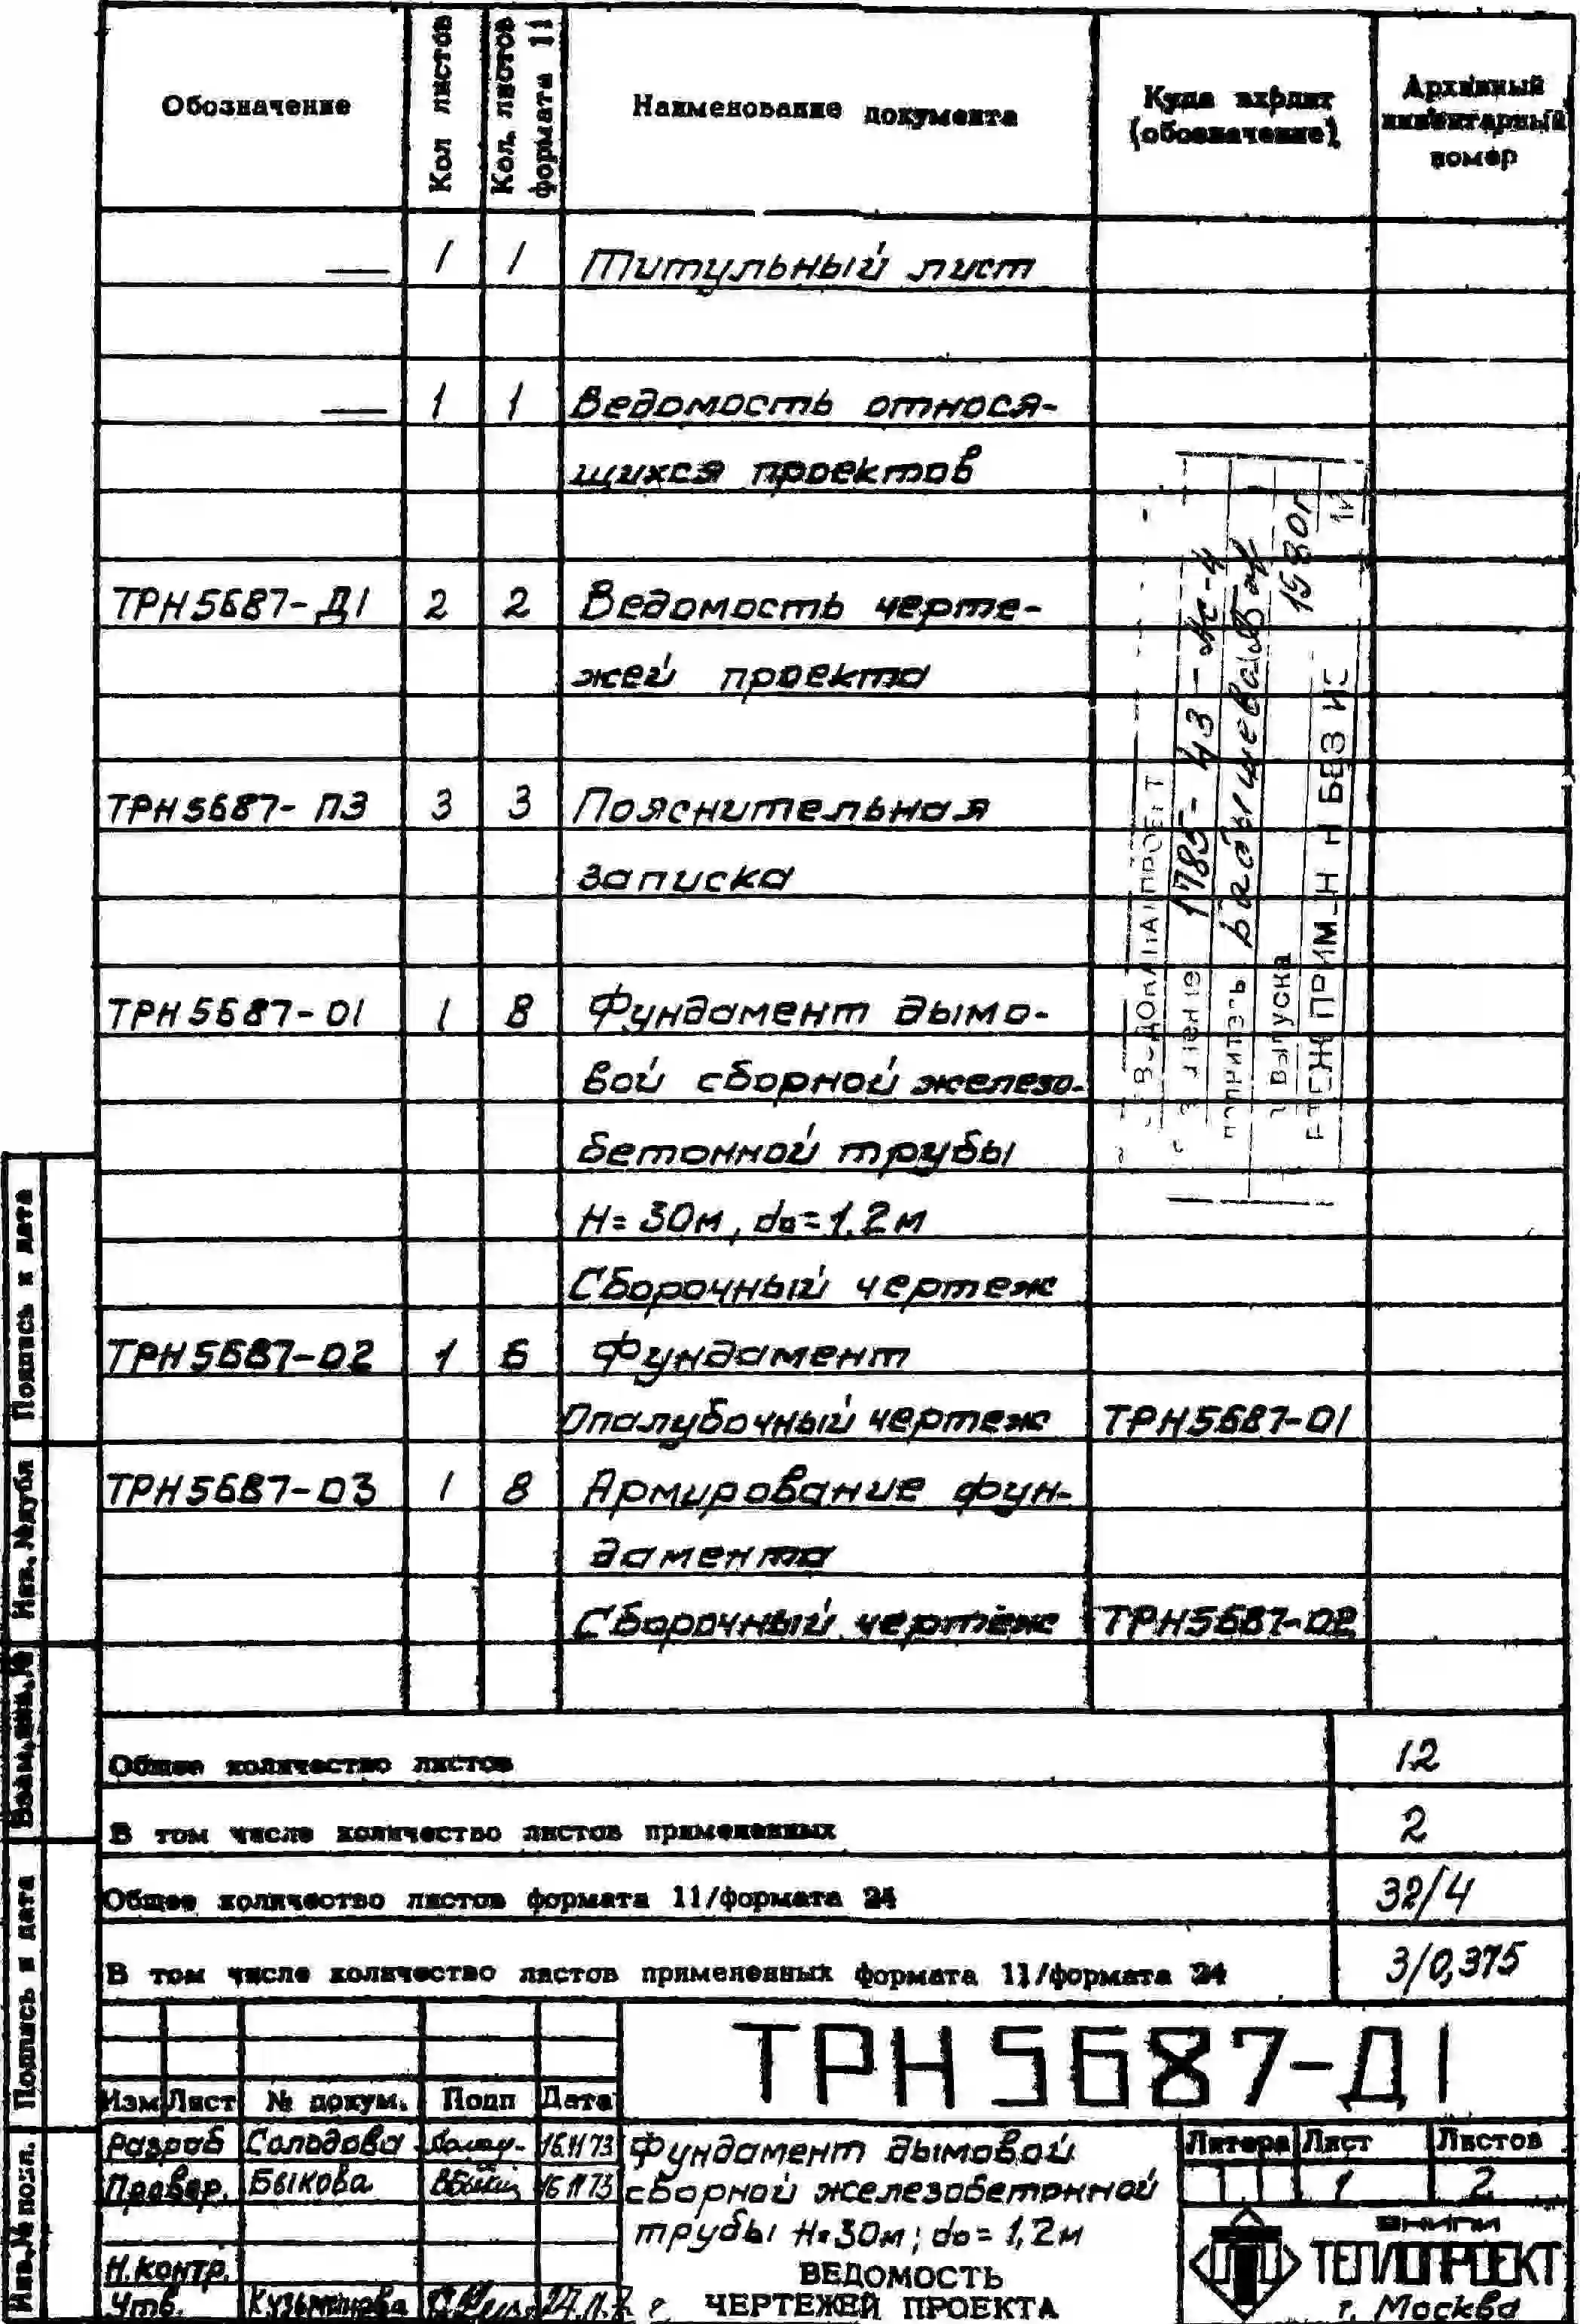 Обозначение | Кол листов | Кол. листов формата 11 | Наименование документа | Куда входит (обозначение) | Архивный инвентарный номер
— 1 1 Титульный лист
— 1 1 Ведомость относя-
щихся проектов
ТРН5687-Д1 2 2 Ведомость черте-
жей проекта
ТРН5687-ПЗ 3 3 Пояснительная
записка
ТРН5687-01 1 8 Фундамент дымо-
вой сборной железо-
бетонной трубы
Н=30м, d₀=1,2м
Сборочный чертеж
ТРН5687-02 1 6 Фундамент
Опалубочный чертеж ТРН5687-01
ТРН5687-03 1 8 Армирование фун-
дамента
Сборочный чертеж ТРН5687-02
1785-43-
выпуска 1980г
Общее количество листов 12
В том числе количество листов примененных 2
Общее количество листов формата 11/формата 24 32/4
В том числе количество листов примененных формата 11/формата 24 3/0,375
Подпись и дата
Инв. №дубл
Взам.инв.№
Подпись и дата
Инв.№ подл.
ТРН5687-Д1
Изм Лист № докум. Подп Дата
Разраб Солодова 16.11 73
Провер. Быкова 16 11 73
Н.контр.
Утв. Кузьминова
Фундамент дымовой
сборной железобетонной
трубы Н=30м; d₀=1,2м
ВЕДОМОСТЬ
ЧЕРТЕЖЕЙ ПРОЕКТА
Литера Лист Листов
1 2
ВНИПИ
ТЕПЛОПРОЕКТ
г. Москва